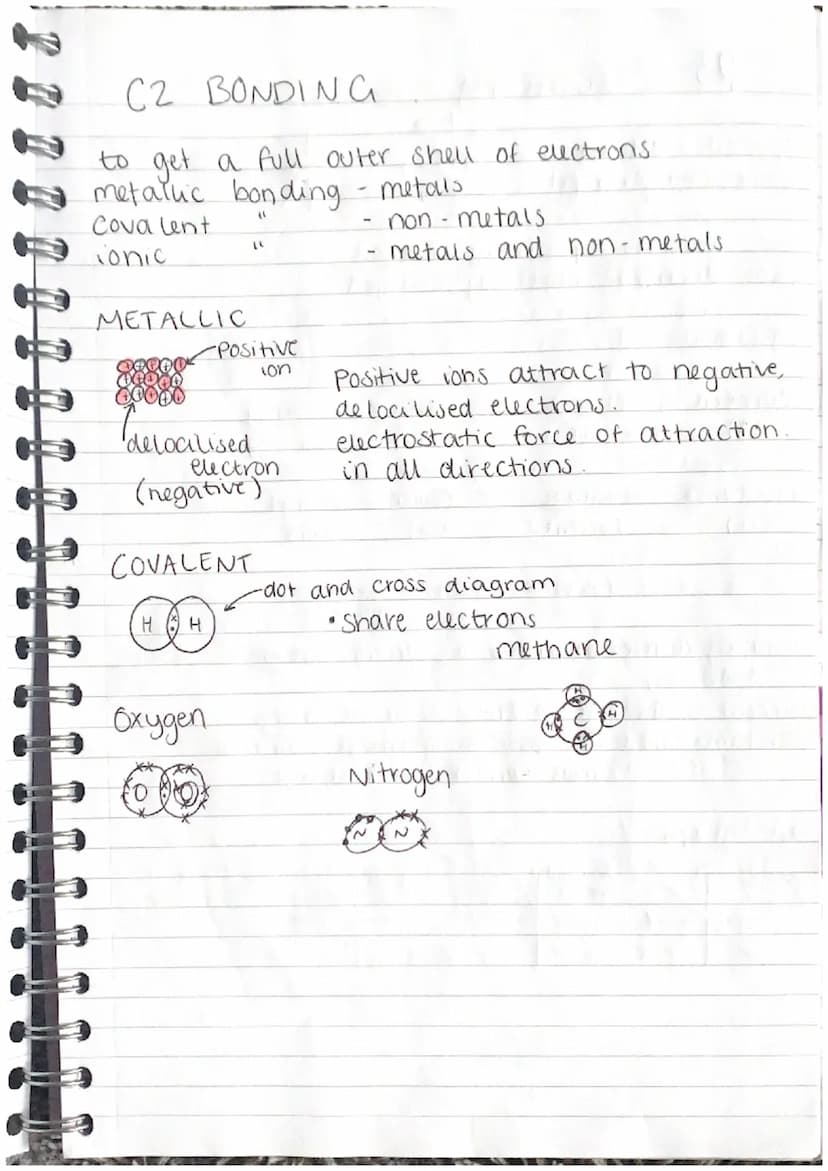 C2 BONDING
to get a full outer shell of electrons
metallic bonding - metals
Covalent " - non-metals
ionic " - metals and non-metals
METALLIC
Positive
ion
delocalised
electron
(negative)
Positive ions attract to negative,
delocilised electrons.
electrostatic force of attraction.
in all directions.
COVALENT
dot and cross diagram
H H
• Share electrons
methane
H
H C H
H
Oxygen
O O
Nitrogen
N N